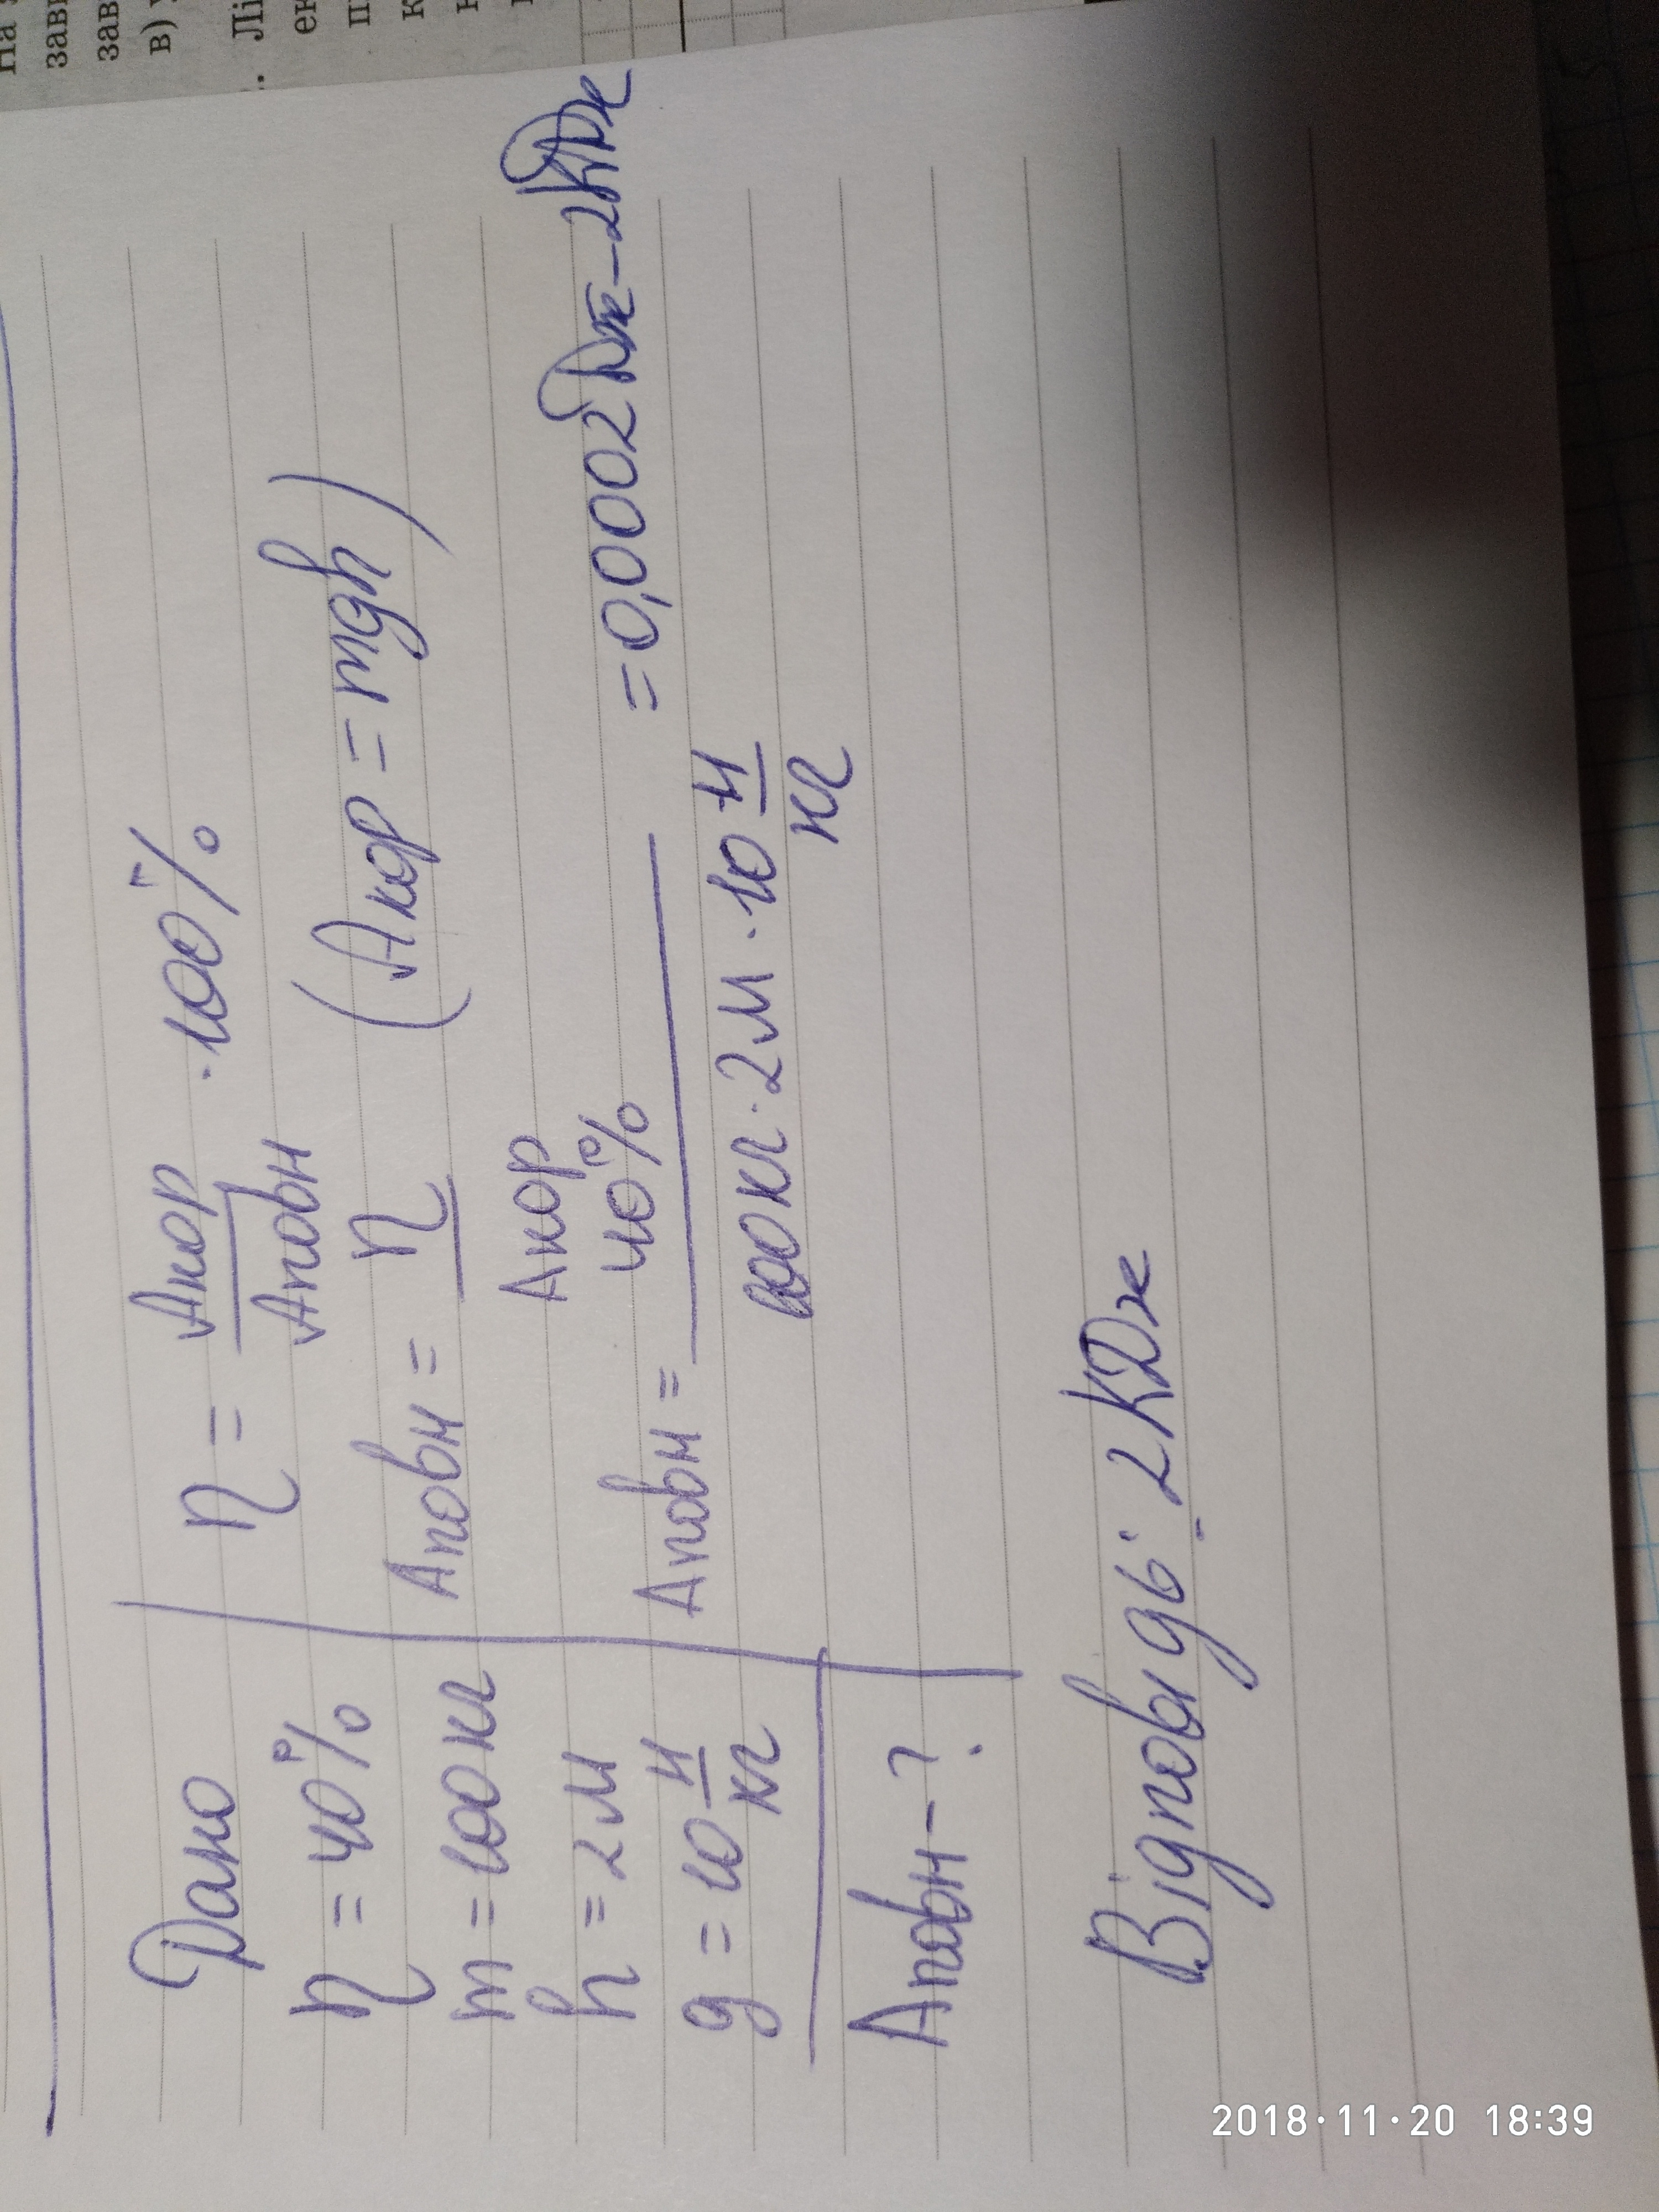 На
зави
зав
в)
. Лі
ек
п
к
Дано
η = 40%
m = 100 кг
h = 2 м
g = 10 Н/кг
Aповн - ?
η = Aкор/Aповн · 100%
Aповн = η/Aкор (Aкор = mgh)
Aповн = 40%/100кг · 2м · 10 Н/кг = 0,0002 Дж - 2КДж
Відповідь: 2 КДж
2018·11·20 18:39